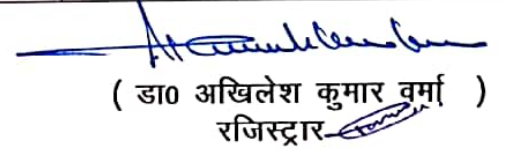 ( डा0 अखिलेश कुमार वर्मा )
रजिस्ट्रार